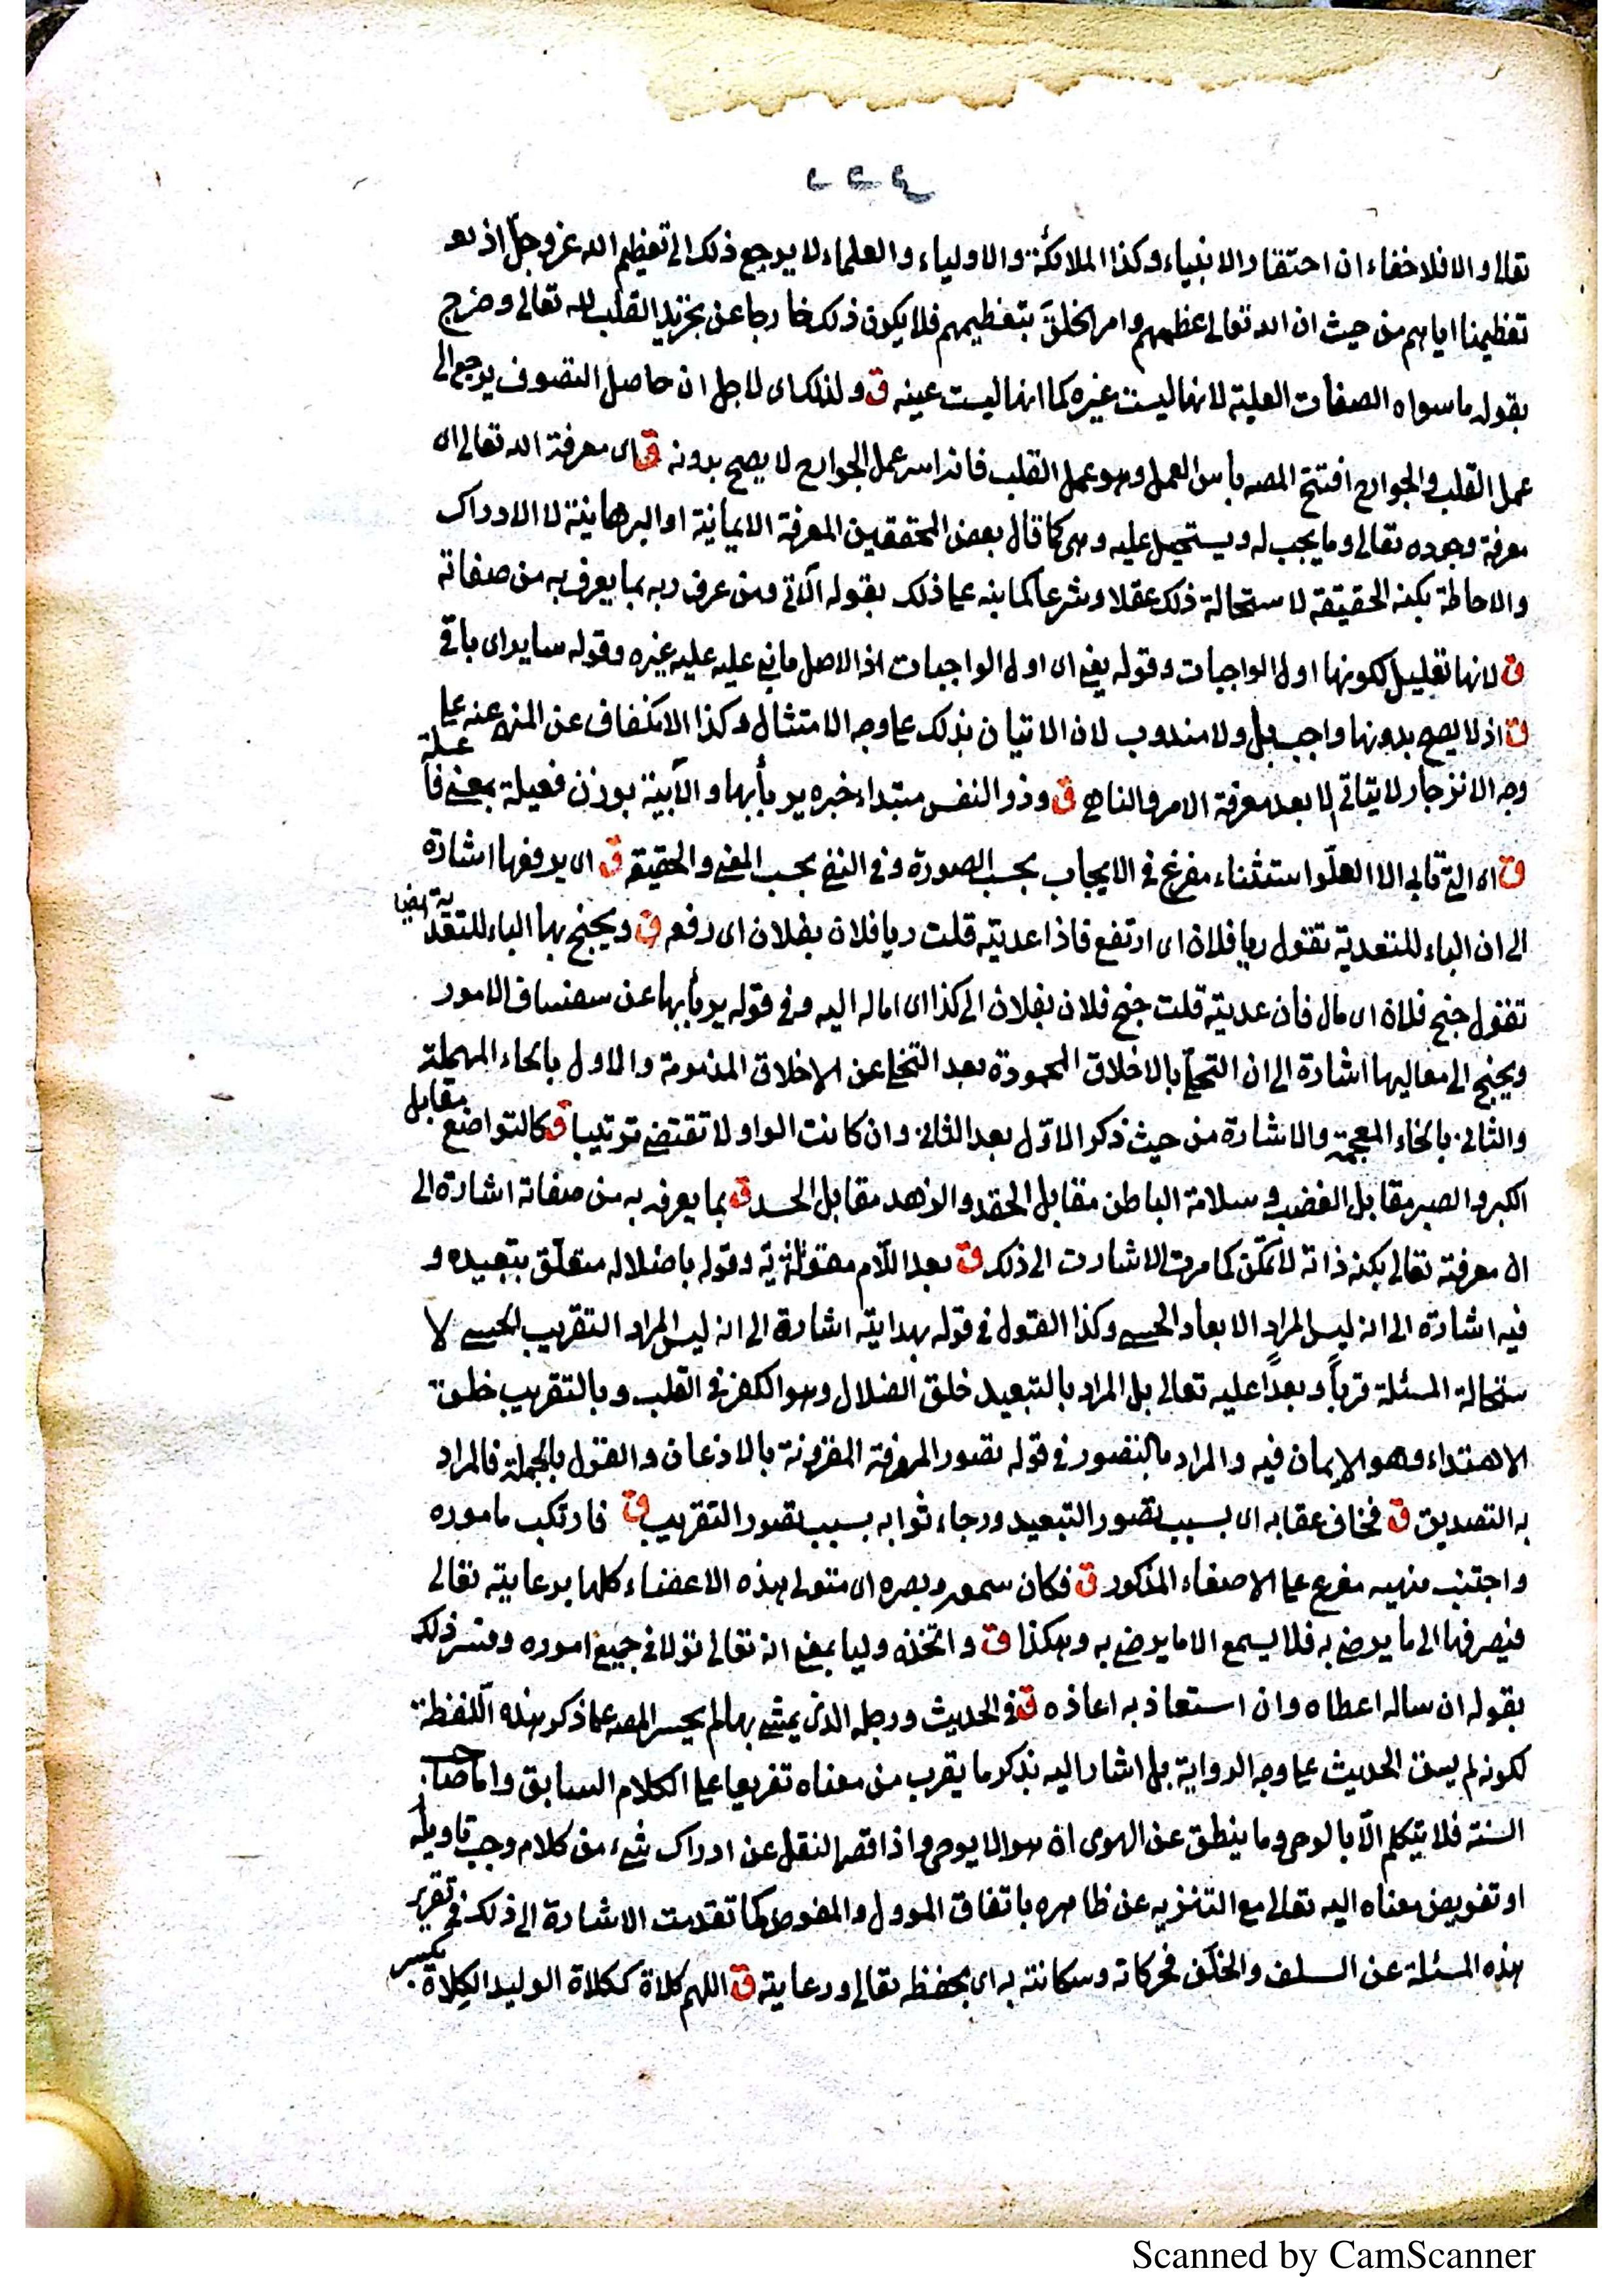 ٢٢٤
تعالى والا فلا خفاء ان احتقار الانبياء وكذا الملائكة والاولياء والعلماء لا يرجع ذلك الى تعظيم الله عز وجل اذ
تعظيمنا اياهم من حيث ان الله تعالى عظمهم وامر الخلق بتعظيمهم فلا يكون ذلك خارجا عن تجريد القلب لله تعالى وخرج
بقوله ما سواه الصفات العلية لانها ليست غيره كما انها ليست عينه ق ولذلك اى لاجل ان حاصل التصوف يرجع الى
عمل القلب والجوارح افتتح المصه بأس العمل وهو عمل القلب فانه اس عمل الجوارح لا يصح بدونه ق اى معرفة الله تعالى اى
معرفة وجوده تعالى وما يجب له ويستحيل عليه وهى كما قال بعض المحققين المعرفة الايمانية او البرهانية لا الادراك
والاحاطة بكنه الحقيقة لاستحالة ذلك عقلا وشرعا كما نبه على ذلك بقوله الآتى ومن عرف ربه بما يعرف به من صفاته
ق لانها تعليل لكونها اول الواجبات وقوله يعنى اى اول الواجبات اذ الاصل ما بنى عليه غيره وقوله ساير اى باقى
ق اذ لا يصح بدونها واجب بل ولا مندوب لان الاتيان بذلك على وجه الامتثال وكذا الانكفاف عن المنهى عنه على
وجه الانزجار لا يتاتى الا بعد معرفة الامر والناهى ق وذو النفس مبتداء خبره يربأ بها والأبية بوزن فعيلة بمعنى فاعلة
ق اى التى تابى الا العلو استثناء مفرغ فى الايجاب بحسب الصورة وفى النفى بحسب المعنى والحقيقة ق اى يرفعها اشارة
الى ان الباء للتعدية تقول ربا فلان اى ارتفع فاذا عديته قلت ربا فلان بفلان اى رفعه ق ويجنح بها الباء للتعدية ايضا
تقول جنح فلان اى مال فأن عديته قلت جنح فلان بفلان الى كذا اى اماله اليه وفى قوله يربأ بها عن سفساف الامور
ويجنح الى معاليها اشارة الى ان التحلى بالاخلاق المحمودة بعد التخلى عن الاخلاق المذمومة والاول بالحاء المهملة
والثانى بالخاء المعجمة والاشارة من حيث ذكر الاول بعد الثانى وان كانت الواو لا تقتضى ترتيبا ق كالتواضع مقابل
الكبر والصبر مقابل الغضب وسلامة الباطن مقابل الحقد والزهد مقابل الحسد ق بما يعرف به من صفاته اشارة الى
ان معرفته تعالى بكنه ذاته لا تمكن كما مرت الاشارت الى ذلك ق تبعد اللام مقوية وقوله باضلاله متعلق بتبعيده و
فيه اشارة الى انه ليس المراد الابعاد الحسى وكذا القول فى قوله بهدايته اشارة الى انه ليس المراد التقريب الحسى لا
ستحالة المسئلة قرباً وبعداً عليه تعالى بل المراد بالتبعيد خلق الضلال وهو الكفر فى القلب وبالتقريب خلق
الاهتداء وهو الايمان فيه والمراد بالتصور فى قوله تصور المعرفة المقرونة بالاذعان والقول بالجملة فالمراد
به التصديق ق فخاف عقابه اى بسبب تصور التبعيد ورجاء ثوابه بسبب تصور التقريب ق فارتكب ماموره
واجتنب منهيه مفرع على الاصغاء المذكور ق فكان سمعه وبصره اى متولى هذه الاعضاء كلها برعايته تعالى
فيصرفها الى ما يرضى به فلا يسمع الا ما يرضى به وهكذا ق واتخذه وليا بمعنى انه تعالى تولاه فى جميع اموره وفسر ذلك
بقوله ان ساله اعطاه وان استعاذ به اعاذه ق فى الحديث ورجله الذى يمشى بها لم يجسر المصه على ذكر هذه اللفظة
لكونه لم يسق الحديث على وجه الرواية بل اشار اليه بذكر ما يقرب من معناه تفريعا على الكلام السابق واما صاحب
السنة فلا يتكلم الا بالوحى وما ينطق عن الهوى ان هو الا يوحى واذا قصر النقل عن ادراك شىء من كلام وجب تاويله
او تفويض معناه اليه تعالى مع التنزيه عن ظاهره باتفاق الموول والمفوض كما تقدمت الاشارة الى ذلك فى تقرير
هذه المسئلة عن السلف والخلف فحركاته وسكانته به اى بحفظه تعالى ورعايته ق اللهم كلاة ككلاة الوليد الكلاة بكسر
Scanned by CamScanner